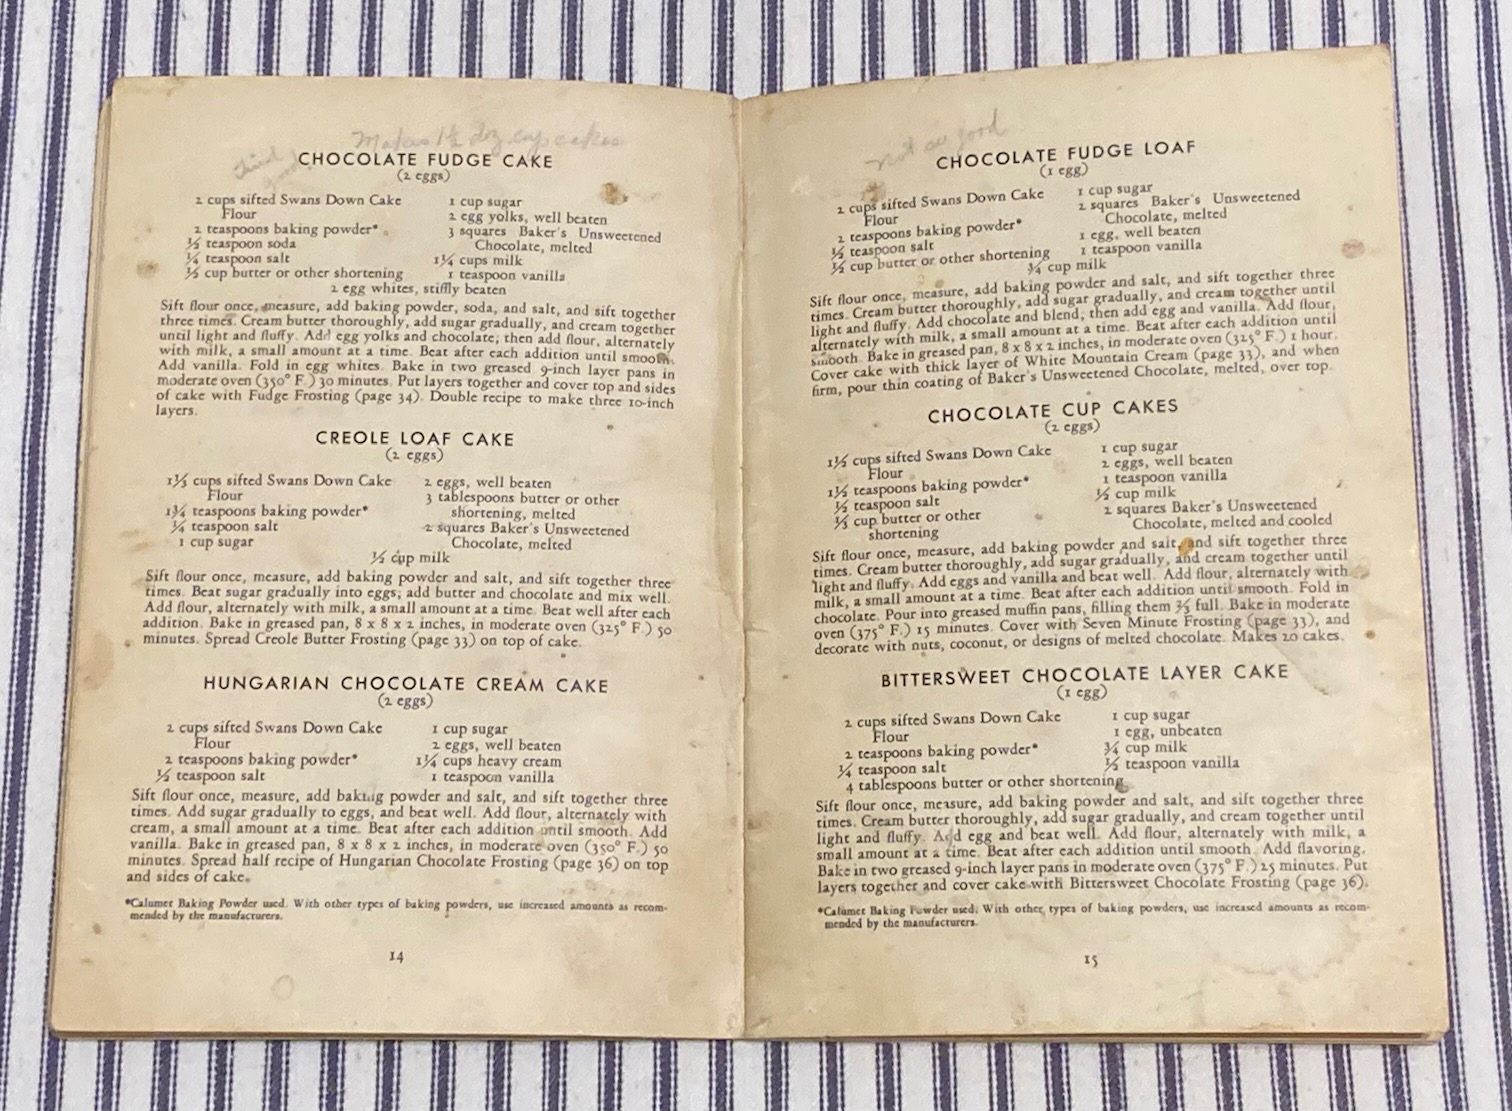 Makes 1½ doz cup cakes
Tried
good!
CHOCOLATE FUDGE CAKE
(2 eggs)
2 cups sifted Swans Down Cake
Flour
2 teaspoons baking powder*
½ teaspoon soda
¼ teaspoon salt
½ cup butter or other shortening
1 cup sugar
2 egg yolks, well beaten
3 squares Baker's Unsweetened
Chocolate, melted
1¼ cups milk
1 teaspoon vanilla
2 egg whites, stiffly beaten
Sift flour once, measure, add baking powder, soda, and salt, and sift together
three times. Cream butter thoroughly, add sugar gradually, and cream together
until light and fluffy. Add egg yolks and chocolate; then add flour, alternately
with milk, a small amount at a time. Beat after each addition until smooth.
Add vanilla. Fold in egg whites. Bake in two greased 9-inch layer pans in
moderate oven (350° F.) 30 minutes. Put layers together and cover top and sides
of cake with Fudge Frosting (page 34). Double recipe to make three 10-inch
layers.
CREOLE LOAF CAKE
(2 eggs)
1⅓ cups sifted Swans Down Cake
Flour
1¾ teaspoons baking powder*
¼ teaspoon salt
1 cup sugar
2 eggs, well beaten
3 tablespoons butter or other
shortening, melted
2 squares Baker's Unsweetened
Chocolate, melted
½ cup milk
Sift flour once, measure, add baking powder and salt, and sift together three
times. Beat sugar gradually into eggs; add butter and chocolate and mix well.
Add flour, alternately with milk, a small amount at a time. Beat well after each
addition. Bake in greased pan, 8 x 8 x 2 inches, in moderate oven (325° F.) 50
minutes. Spread Creole Butter Frosting (page 33) on top of cake.
HUNGARIAN CHOCOLATE CREAM CAKE
(2 eggs)
2 cups sifted Swans Down Cake
Flour
2 teaspoons baking powder*
½ teaspoon salt
1 cup sugar
2 eggs, well beaten
1¼ cups heavy cream
1 teaspoon vanilla
Sift flour once, measure, add baking powder and salt, and sift together three
times. Add sugar gradually to eggs, and beat well. Add flour, alternately with
cream, a small amount at a time. Beat after each addition until smooth. Add
vanilla. Bake in greased pan, 8 x 8 x 2 inches, in moderate oven (350° F.) 50
minutes. Spread half recipe of Hungarian Chocolate Frosting (page 36) on top
and sides of cake.
*Calumet Baking Powder used. With other types of baking powders, use increased amounts as recom-
mended by the manufacturers.
14
not so good
CHOCOLATE FUDGE LOAF
(1 egg)
2 cups sifted Swans Down Cake
Flour
2 teaspoons baking powder*
½ teaspoon salt
½ cup butter or other shortening
1 cup sugar
2 squares Baker's Unsweetened
Chocolate, melted
1 egg, well beaten
1 teaspoon vanilla
¾ cup milk
Sift flour once, measure, add baking powder and salt, and sift together three
times. Cream butter thoroughly, add sugar gradually, and cream together until
light and fluffy. Add chocolate and blend; then add egg and vanilla. Add flour,
alternately with milk, a small amount at a time. Beat after each addition until
smooth. Bake in greased pan, 8 x 8 x 2 inches, in moderate oven (325° F.) 1 hour.
Cover cake with thick layer of White Mountain Cream (page 33), and when
firm, pour thin coating of Baker's Unsweetened Chocolate, melted, over top.
CHOCOLATE CUP CAKES
(2 eggs)
1½ cups sifted Swans Down Cake
Flour
1½ teaspoons baking powder*
½ teaspoon salt
⅓ cup butter or other
shortening
1 cup sugar
2 eggs, well beaten
1 teaspoon vanilla
½ cup milk
2 squares Baker's Unsweetened
Chocolate, melted and cooled
Sift flour once, measure, add baking powder and salt, and sift together three
times. Cream butter thoroughly, add sugar gradually, and cream together until
light and fluffy. Add eggs and vanilla and beat well. Add flour, alternately with
milk, a small amount at a time. Beat after each addition until smooth. Fold in
chocolate. Pour into greased muffin pans, filling them ⅔ full. Bake in moderate
oven (375° F.) 15 minutes. Cover with Seven Minute Frosting (page 33), and
decorate with nuts, coconut, or designs of melted chocolate. Makes 20 cakes.
BITTERSWEET CHOCOLATE LAYER CAKE
(1 egg)
2 cups sifted Swans Down Cake
Flour
2 teaspoons baking powder*
¼ teaspoon salt
4 tablespoons butter or other shortening
1 cup sugar
1 egg, unbeaten
¾ cup milk
½ teaspoon vanilla
Sift flour once, measure, add baking powder and salt, and sift together three
times. Cream butter thoroughly, add sugar gradually, and cream together until
light and fluffy. Add egg and beat well. Add flour, alternately with milk, a
small amount at a time. Beat after each addition until smooth. Add flavoring.
Bake in two greased 9-inch layer pans in moderate oven (375° F.) 25 minutes. Put
layers together and cover cake with Bittersweet Chocolate Frosting (page 36).
*Calumet Baking Powder used. With other types of baking powders, use increased amounts as recom-
mended by the manufacturers.
15